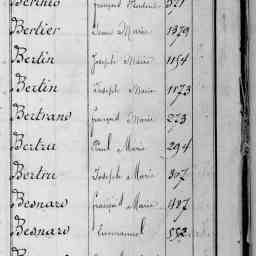 Berthier François Prudent 521
Bertier Louis Marie 1379
Bertin Joseph Marie 1154
Bertin Joseph Marie 1173
Bertrand François Marie 273
Bertru Paul Marie 294
Bertru Joseph Marie 307
Besnard François Marie 487
Besnard Emmanuel 552